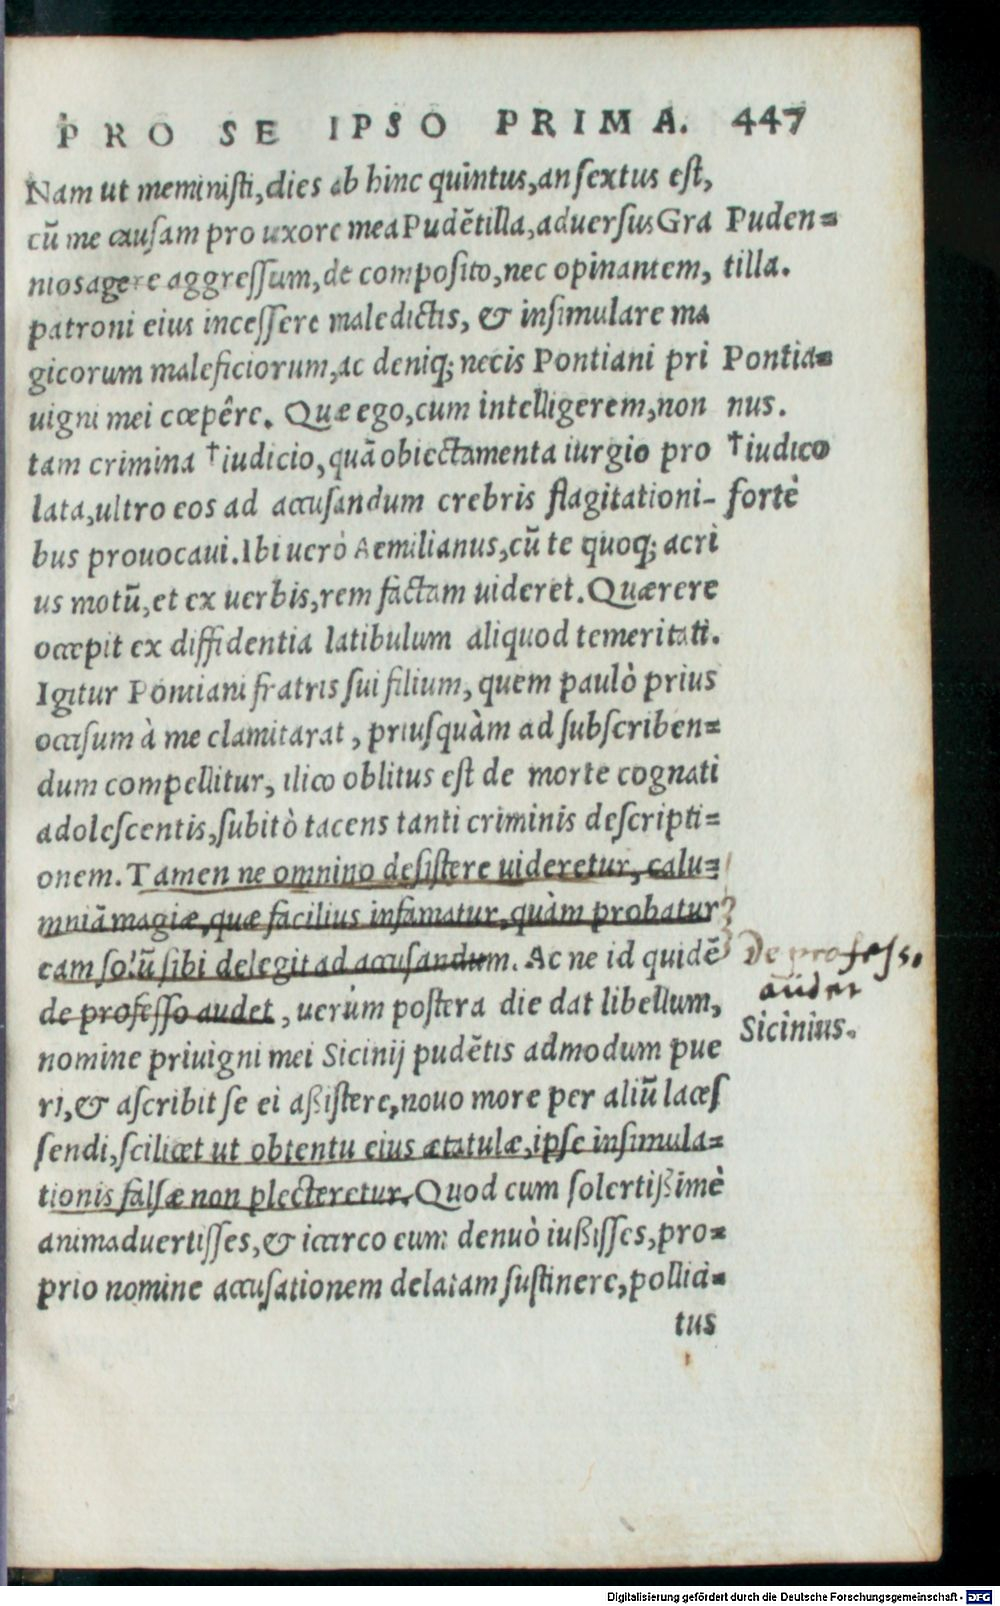 PRO SE IPSO PRIMA. 447
Nam ut meministi, dies ab hinc quintus, an sextus est,
cū me causam pro uxore mea Pudētilla, adversus Gra
niosagere aggressum, de composito, nec opinantem,
patroni eius incessere maledictis, & insimulare ma
gicorum maleficiorum, ac deniq; necis Pontiani pri
uigni mei cœpêre. Quæ ego, cum intelligerem, non
tam crimina †iudicio, quā obiectamenta iurgio pro
lata, ultro eos ad accusandum crebris flagitationi-
bus prouocaui. Ibi uerò Aemilianus, cū te quoq; acri
us motū, et ex uerbis, rem factam uideret. Quærere
occepit ex diffidentia latibulum aliquod temeritati.
Igitur Pontiani fratris sui filium, quem paulò prius
occisum à me clamitarat, priusquàm ad subscriben=
dum compellitur, ilico oblitus est de morte cognati
adolescentis, subitò tacens tanti criminis descripti=
onem. Tamen ne omnino desistere uideretur, calu=
mniā magiæ, quæ facilius infamatur, quàm probatur
eam solū sibi delegit ad accusandum. Ac ne id quidē
de professo audet, uerùm postera die dat libellum,
nomine priuigni mei Sicinij pudētis admodum pue
ri, & ascribit se ei aßistere, nouo more per aliū laces
sendi, scilicet ut obtentu eius ætatulæ, ipse insimula=
tionis falsæ non plecteretur. Quod cum solertißimè
animaduertisses, & iccirco eum denuò iußisses, pro=
prio nomine accusationem delatam sustinere, pollici=
tus
Puden=
tilla.
Pontia=
nus.
†iudico
fortè
De profess.
audere
Sicinius.
Digitalisierung gefördert durch die Deutsche Forschungsgemeinschaft - DFG